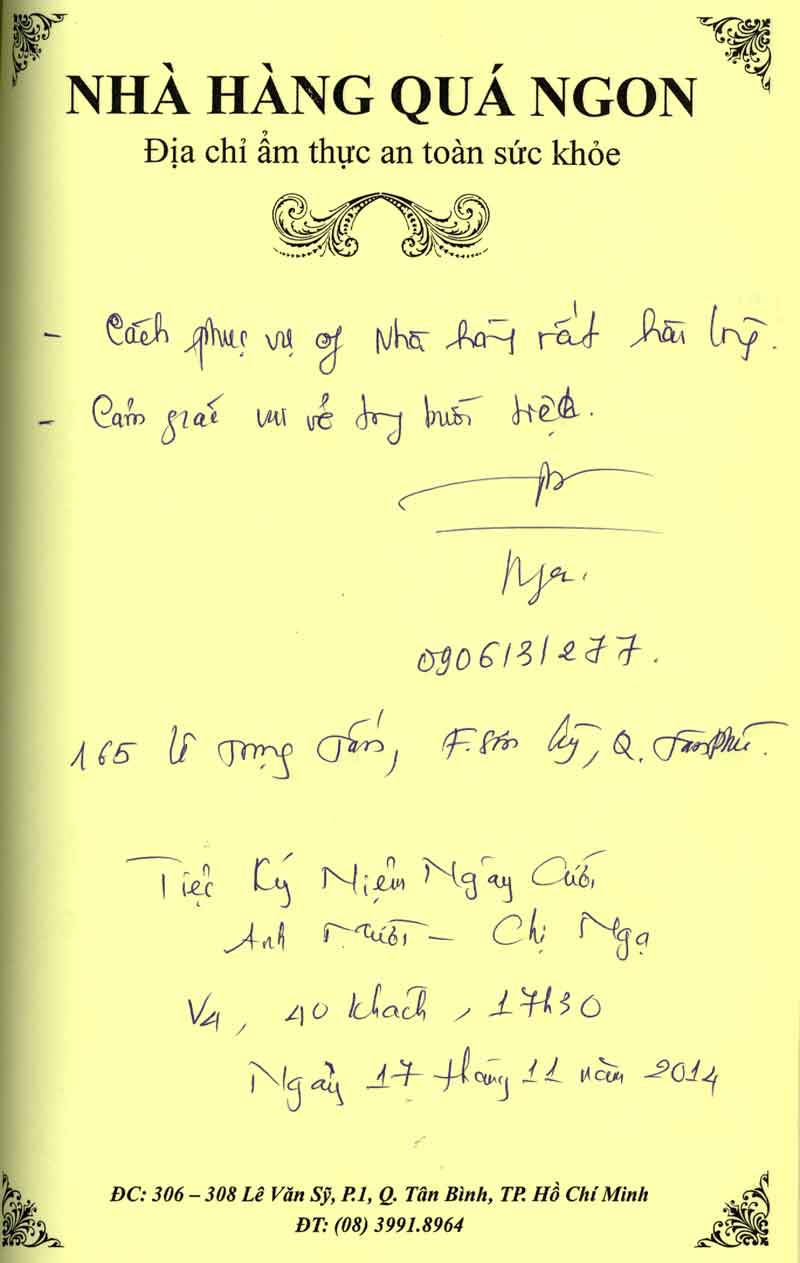 NHÀ HÀNG QUÁ NGON
Địa chỉ ẩm thực an toàn sức khỏe
- Cách phục vụ of Nhà hàng rất hài lòng.
- Cảm giác vui vẻ trong buổi tiệc.
Nga.
0906131277.
165 Lê Trọng Tấn, F. Sơn Kỳ, Q. Tân Phú.
Tiệc Kỷ Niệm Ngày Cưới
Anh Mười - Chị Nga
V4, 40 khách, 17h30
Ngày 17 tháng 11 năm 2014
ĐC: 306 – 308 Lê Văn Sỹ, P.1, Q. Tân Bình, TP. Hồ Chí Minh
ĐT: (08) 3991.8964